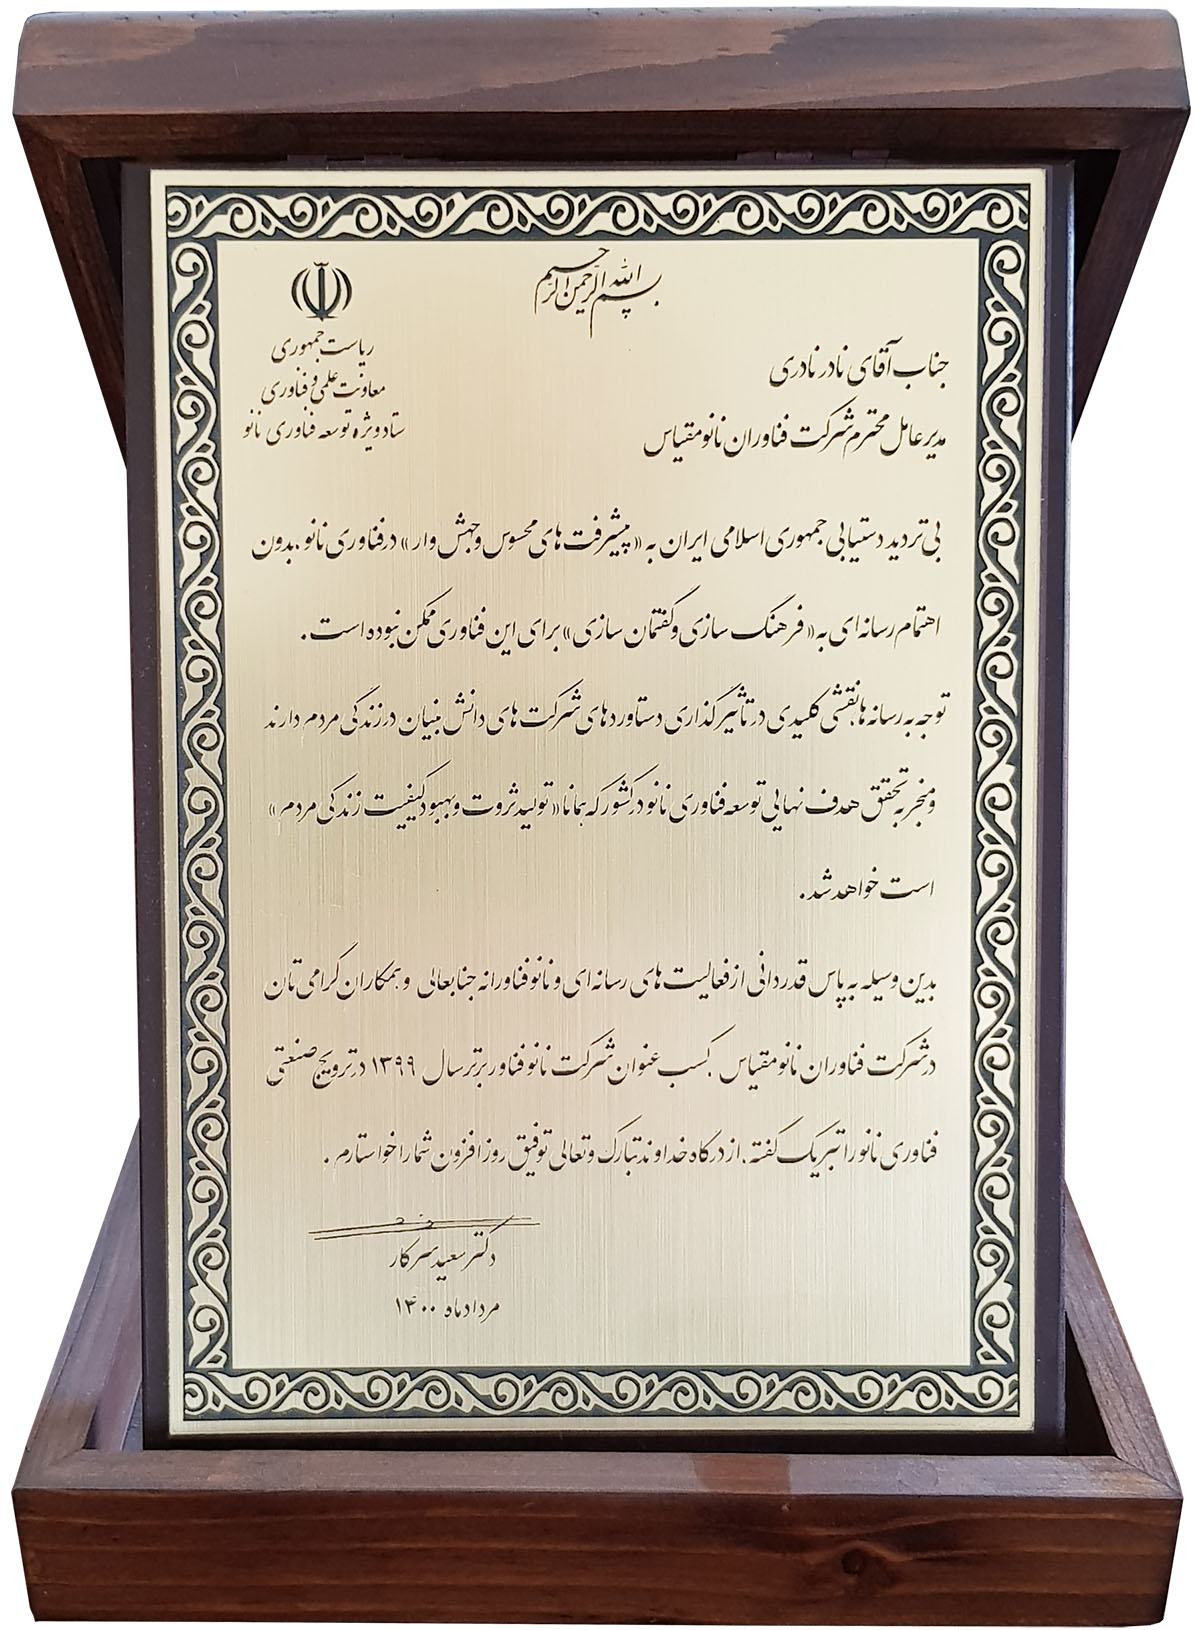 بسم الله الرحمن الرحیم
ریاست جمهوری
معاونت علمی و فناوری
ستاد ویژه توسعه فناوری نانو
جناب آقای نادر نادری
مدیر عامل محترم شرکت فناوران نانومقیاس
بی تردید دستیابی جمهوری اسلامی ایران به «پیشرفت های محسوس و جهش وار» در فناوری نانو، بدون
اهتمام رسانه ای به «فرهنگ سازی و گفتمان سازی» برای این فناوری ممکن نبوده است.
توجه به رسانه ها، نقشی کلیدی در تأثیرگذاری دستاوردهای شرکت های دانش بنیان در زندگی مردم دارند
و منجر به تحقق هدف نهایی توسعه فناوری نانو در کشور که همانا «تولید ثروت و بهبود کیفیت زندگی مردم»
است خواهد شد.
بدین وسیله به پاس قدردانی از فعالیت های رسانه ای و نانوفناورانه جنابعالی و همکاران گرامی تان
در شرکت فناوران نانومقیاس، کسب عنوان شرکت نانوفناور برتر سال ۱۳۹۹ در ترویج صنعتی
فناوری نانو را تبریک گفته، از درگاه خداوند تبارک و تعالی توفیق روزافزون شما را خواستارم.
دکتر سعید سرکار
مرداد ماه ۱۴۰۰